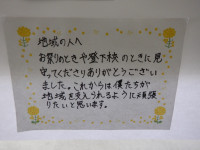 地域の人へ
お祭りのときや登下校のときに見
守ってくださりありがとうござい
ました。これからは僕たちが
地域を支えられるように頑張
りたいと思います。